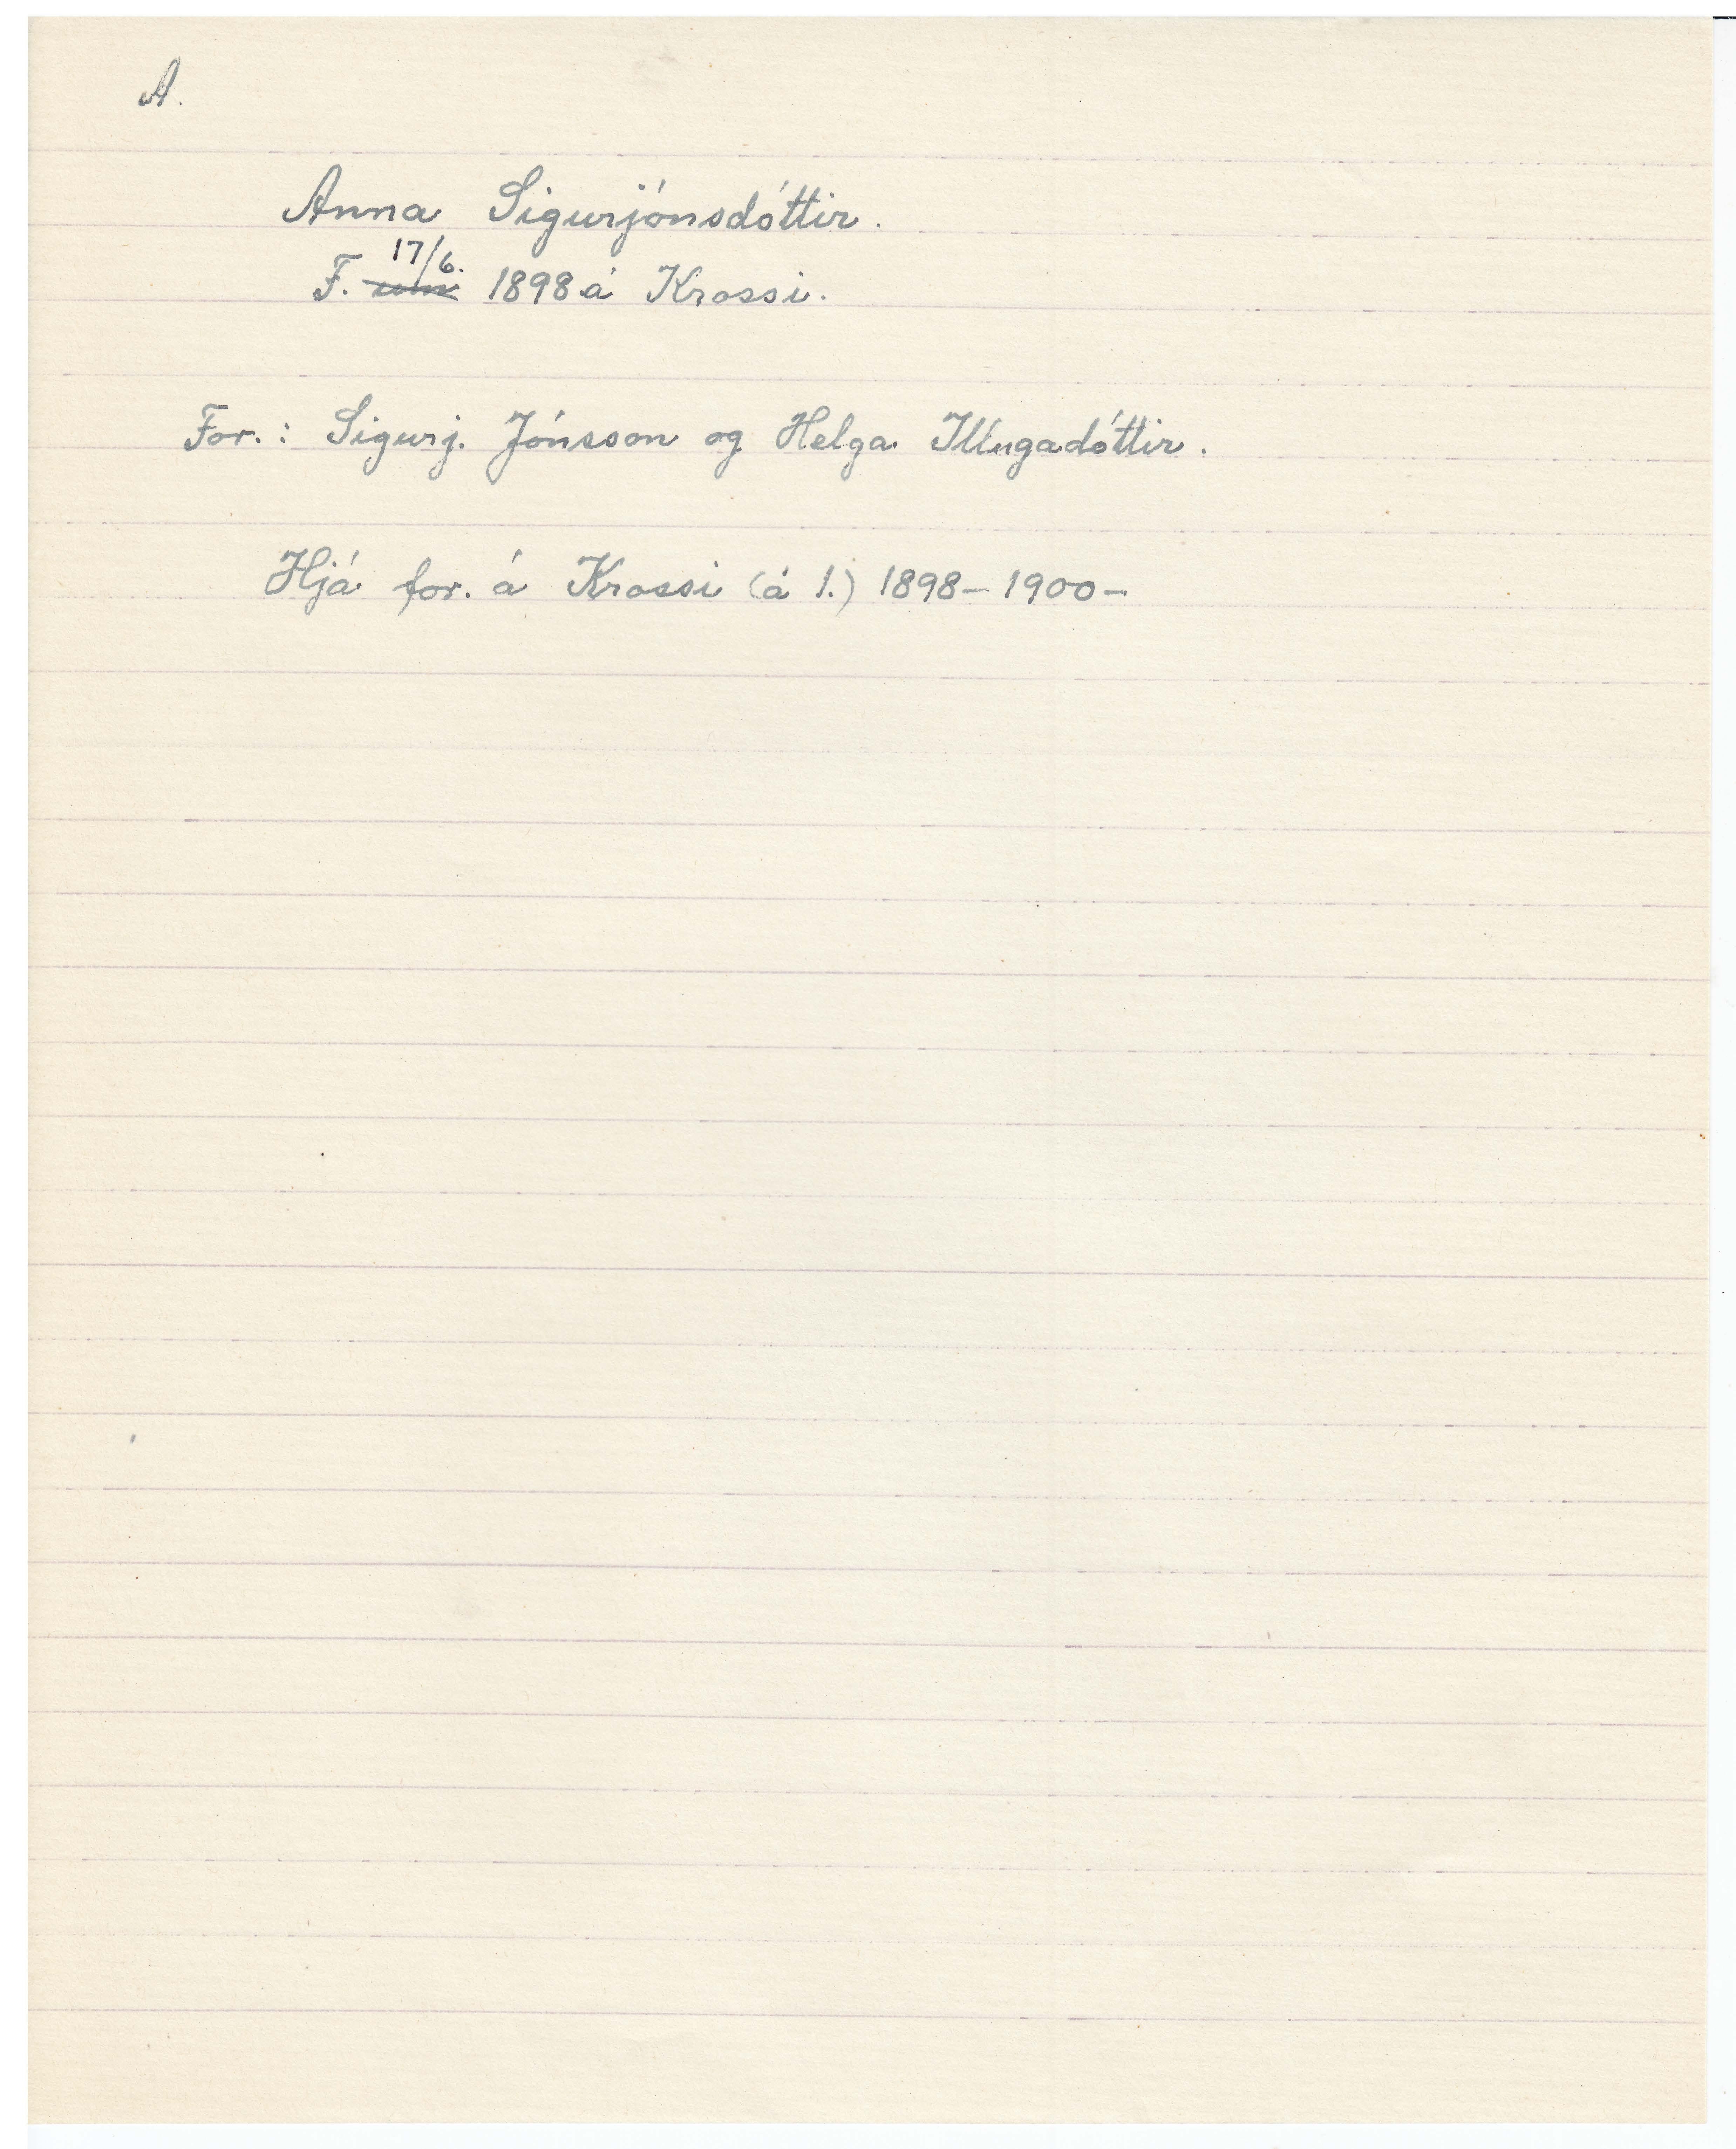 A.
Anna Sigurjónsdóttir.
F. 17/6. 1898 á Krossi.
For.: Sigurj. Jónsson og Helga Illugadóttir.
Hjá for. á Krossi (á 1.) 1898-1900-